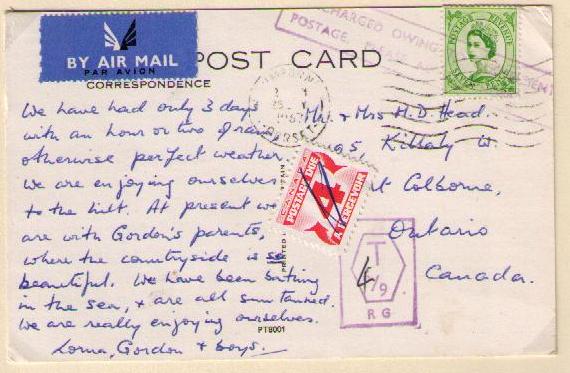 BY AIR MAIL
PAR AVION
POST CARD
CORRESPONDENCE
CHARGED OWING
POSTAGE
POSTAGE REVENUE
DORSET
We have had only 3 days
with an hour or two of rain
otherwise perfect weather.
We are enjoying ourselves
to the hilt. At present we
are with Gordon's parents,
where the countryside is so
beautiful. We have been bathing
in the sea, & are all sun tanned.
We are really enjoying ourselves.
Lorna, Gordon & boys.
Mr. & Mrs H.D. Head.
5 Killaly W.
t Colborne,
Ontario
Canada.
CANADA
POSTAGE DUE
4
A PERCEVOIR
PRINTED
T
4/9
RG
PT8001